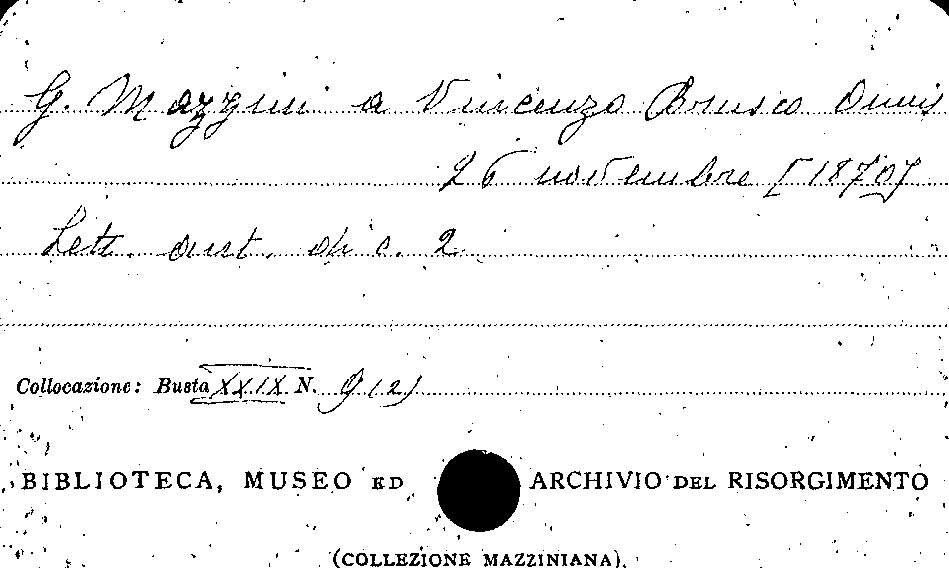 G. Mazzini a Vincenzo Brusco Onnis
26 novembre [1870]
Lett. aut. di c. 2
Collocazione: Busta XXIX N. 9(2)
BIBLIOTECA, MUSEO ED ARCHIVIO DEL RISORGIMENTO
(COLLEZIONE MAZZINIANA)